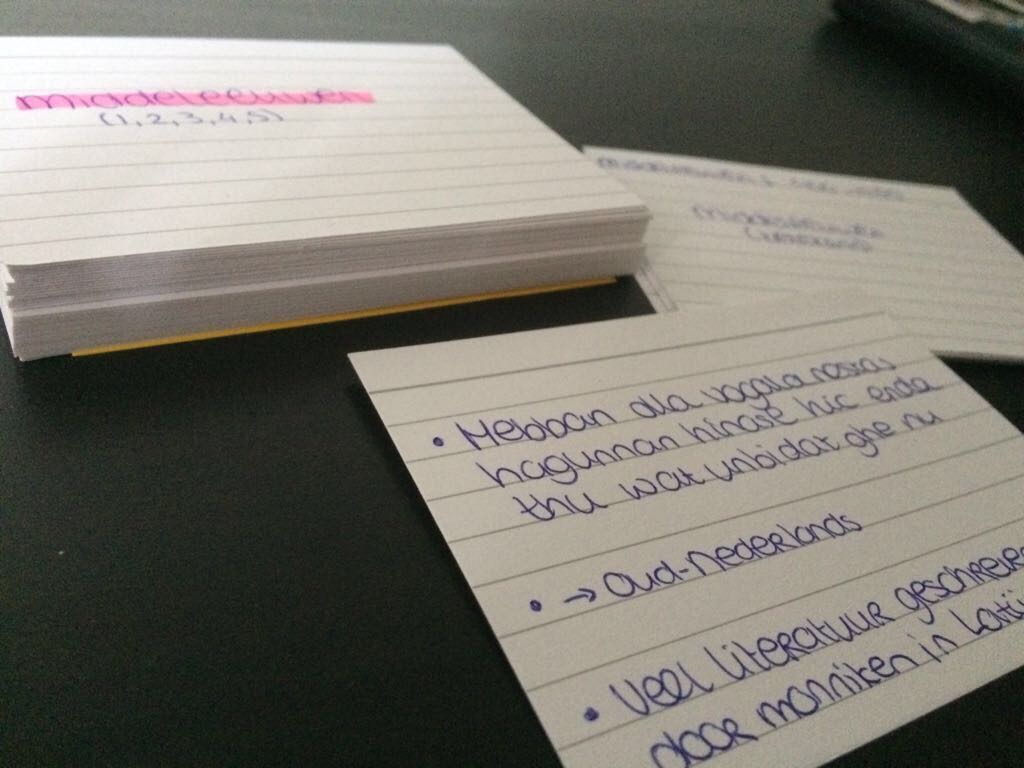 middeleeuwen
(1,2,3,4,5)
• Hebban olla vogala nestas
hagunnan hinase hic enda
thu wat unbidat ghe nu
• → Oud-Nederlands
• Veel literatuur geschreven
door monniken in Latij